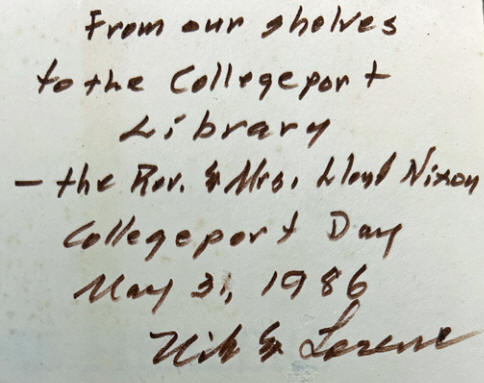 From our shelves
to the Collegeport
Library
— the Rev. & Mrs. Lloyd Nixon
Collegeport Day
May 31, 1986
& Lorene